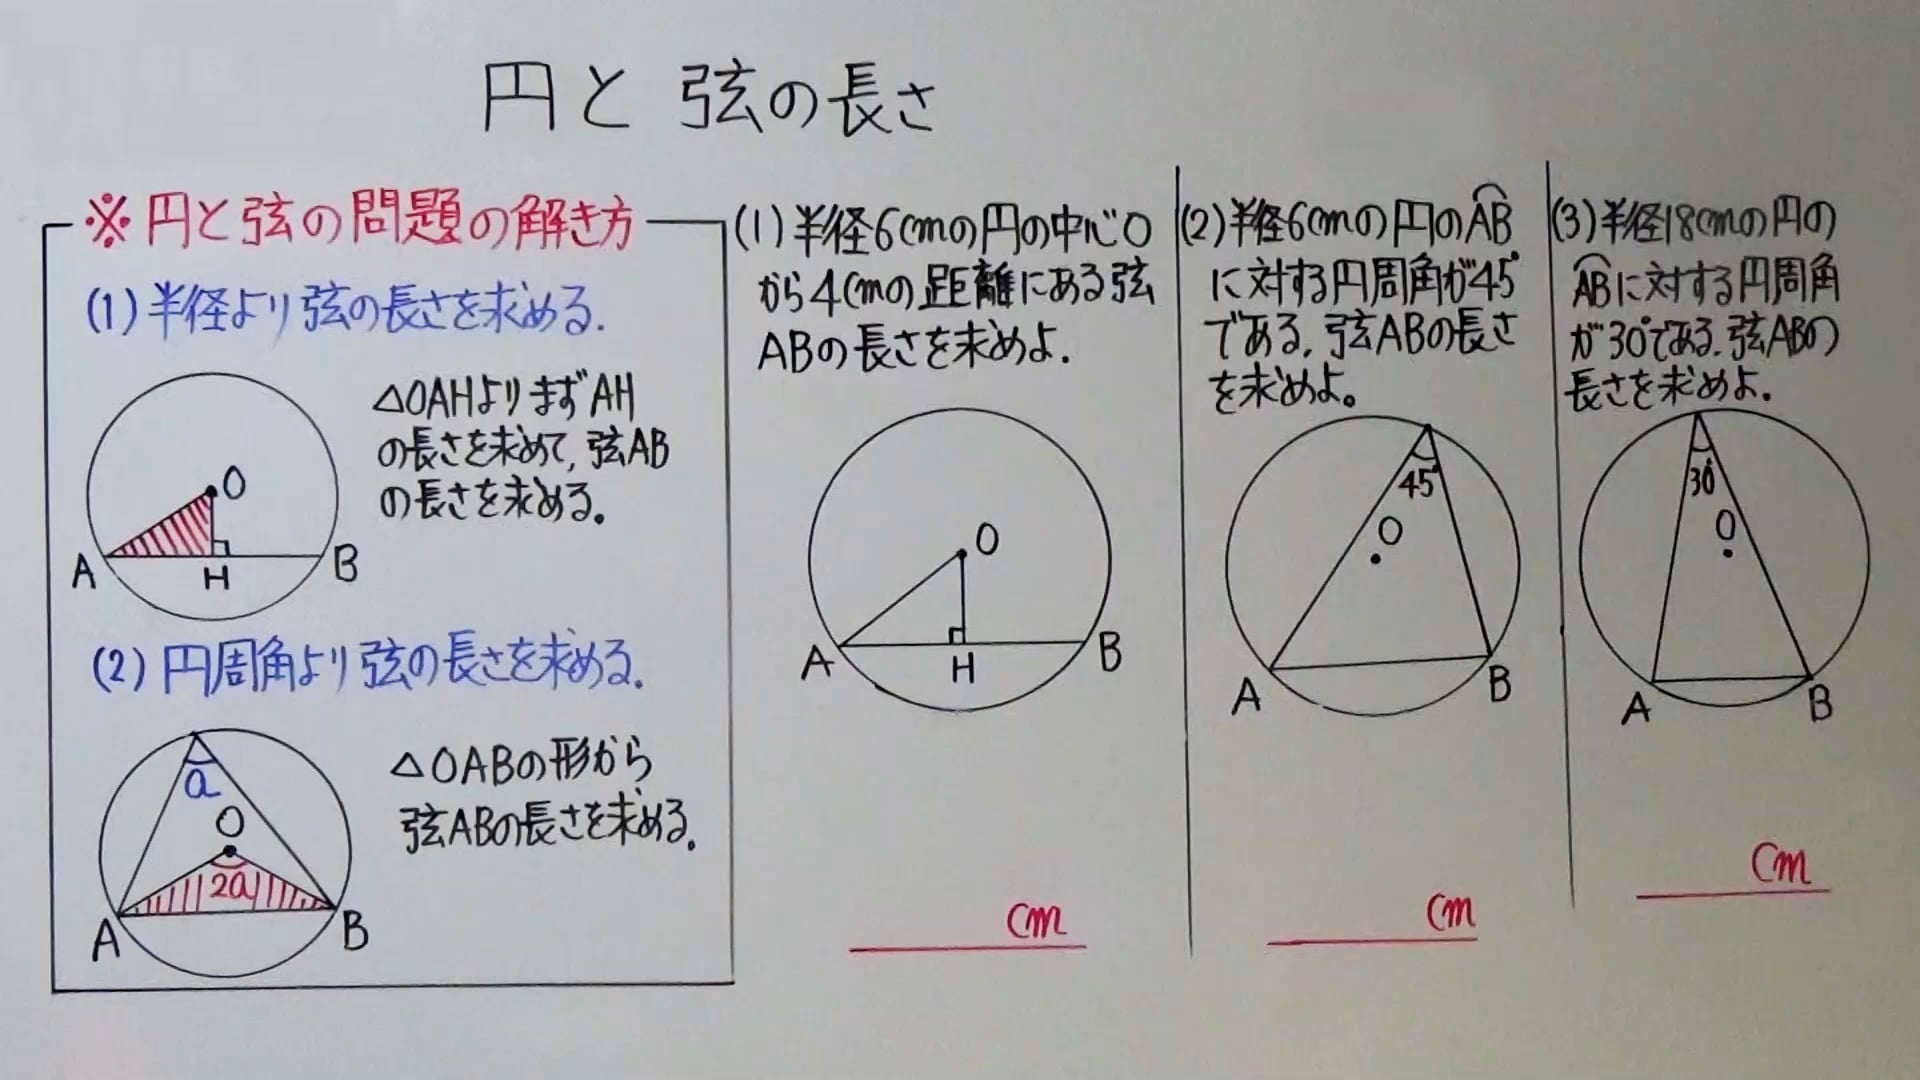 円と弦の長さ
※円と弦の問題の解き方
(1)半径より弦の長さを求める.
△OAHよりまずAH
の長さを求めて,弦AB
の長さを求める。
O
A
H
B
(2)円周角より弦の長さを求める.
△OABの形から
弦ABの長さを求める.
a
O
2a
A
B
(1)半径6cmの円の中心O
から4cmの距離にある弦
ABの長さを求めよ.
O
A
H
B
cm
(2)半径6cmの円のA͡B
に対する円周角が45°
である.弦ABの長さ
を求めよ。
45°
O
A
B
cm
(3)半径18cmの円の
A͡Bに対する円周角
が30°である.弦ABの
長さを求めよ.
30°
O
A
B
cm